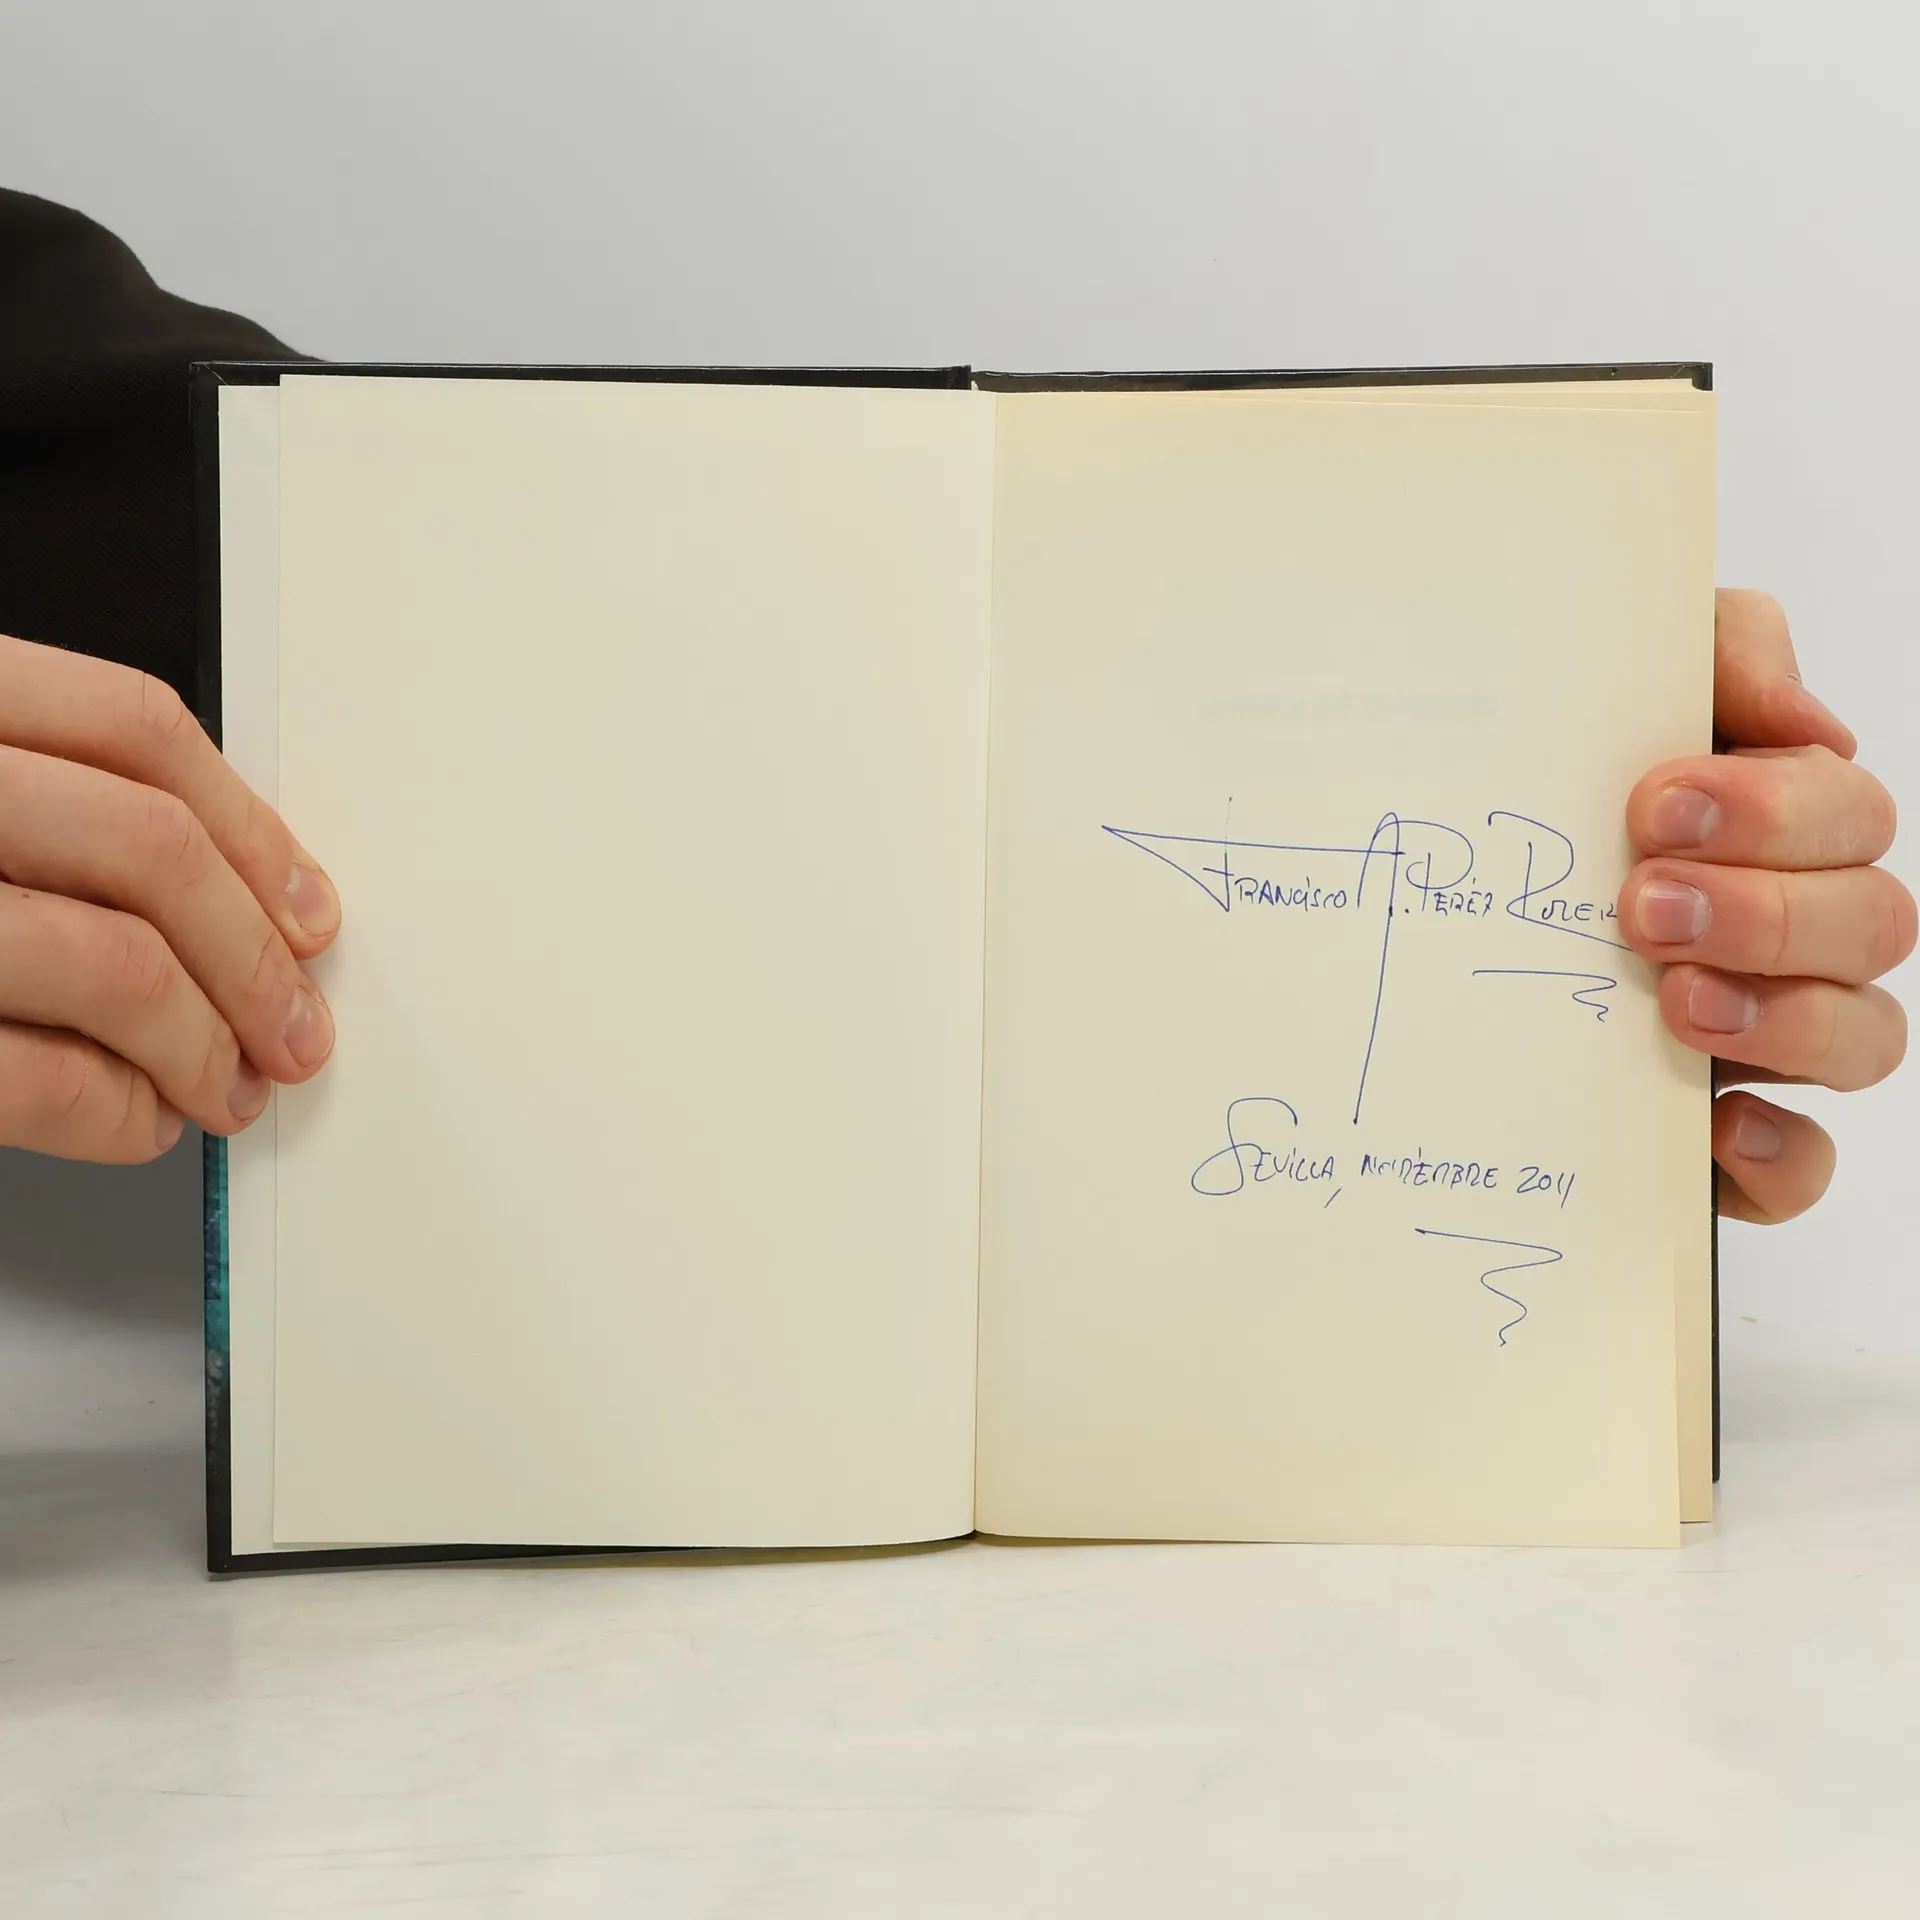 Francisco A. Peréz
Sevilla, Noviembre 2011